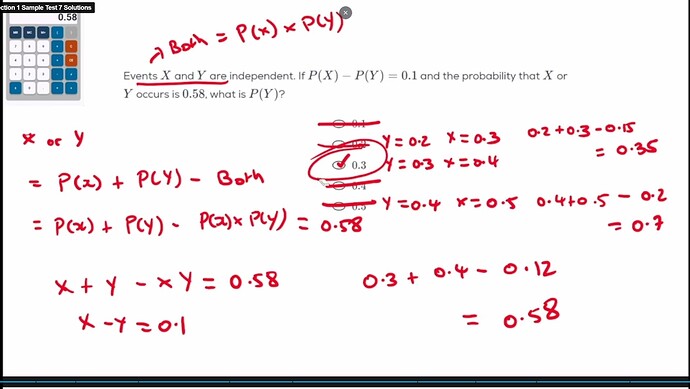 ction 1 Sample Test 7 Solutions
0.58
Both = P(x) × P(Y)
Events X and Y are independent. If P(X) − P(Y) = 0.1 and the probability that X or
Y occurs is 0.58, what is P(Y)?
0.1
X or Y
Y=0.2 X=0.3 0.2+0.3-0.15
= 0.35
0.3 Y=0.3 X=0.4
= P(x) + P(Y) - Both
0.4
0.5 Y=0.4 X=0.5 0.4+0.5 - 0.2
= 0.7
= P(x) + P(Y) - P(x)×P(Y) = 0.58
X + Y - XY = 0.58
X-Y=0.1
0.3 + 0.4 - 0.12
= 0.58